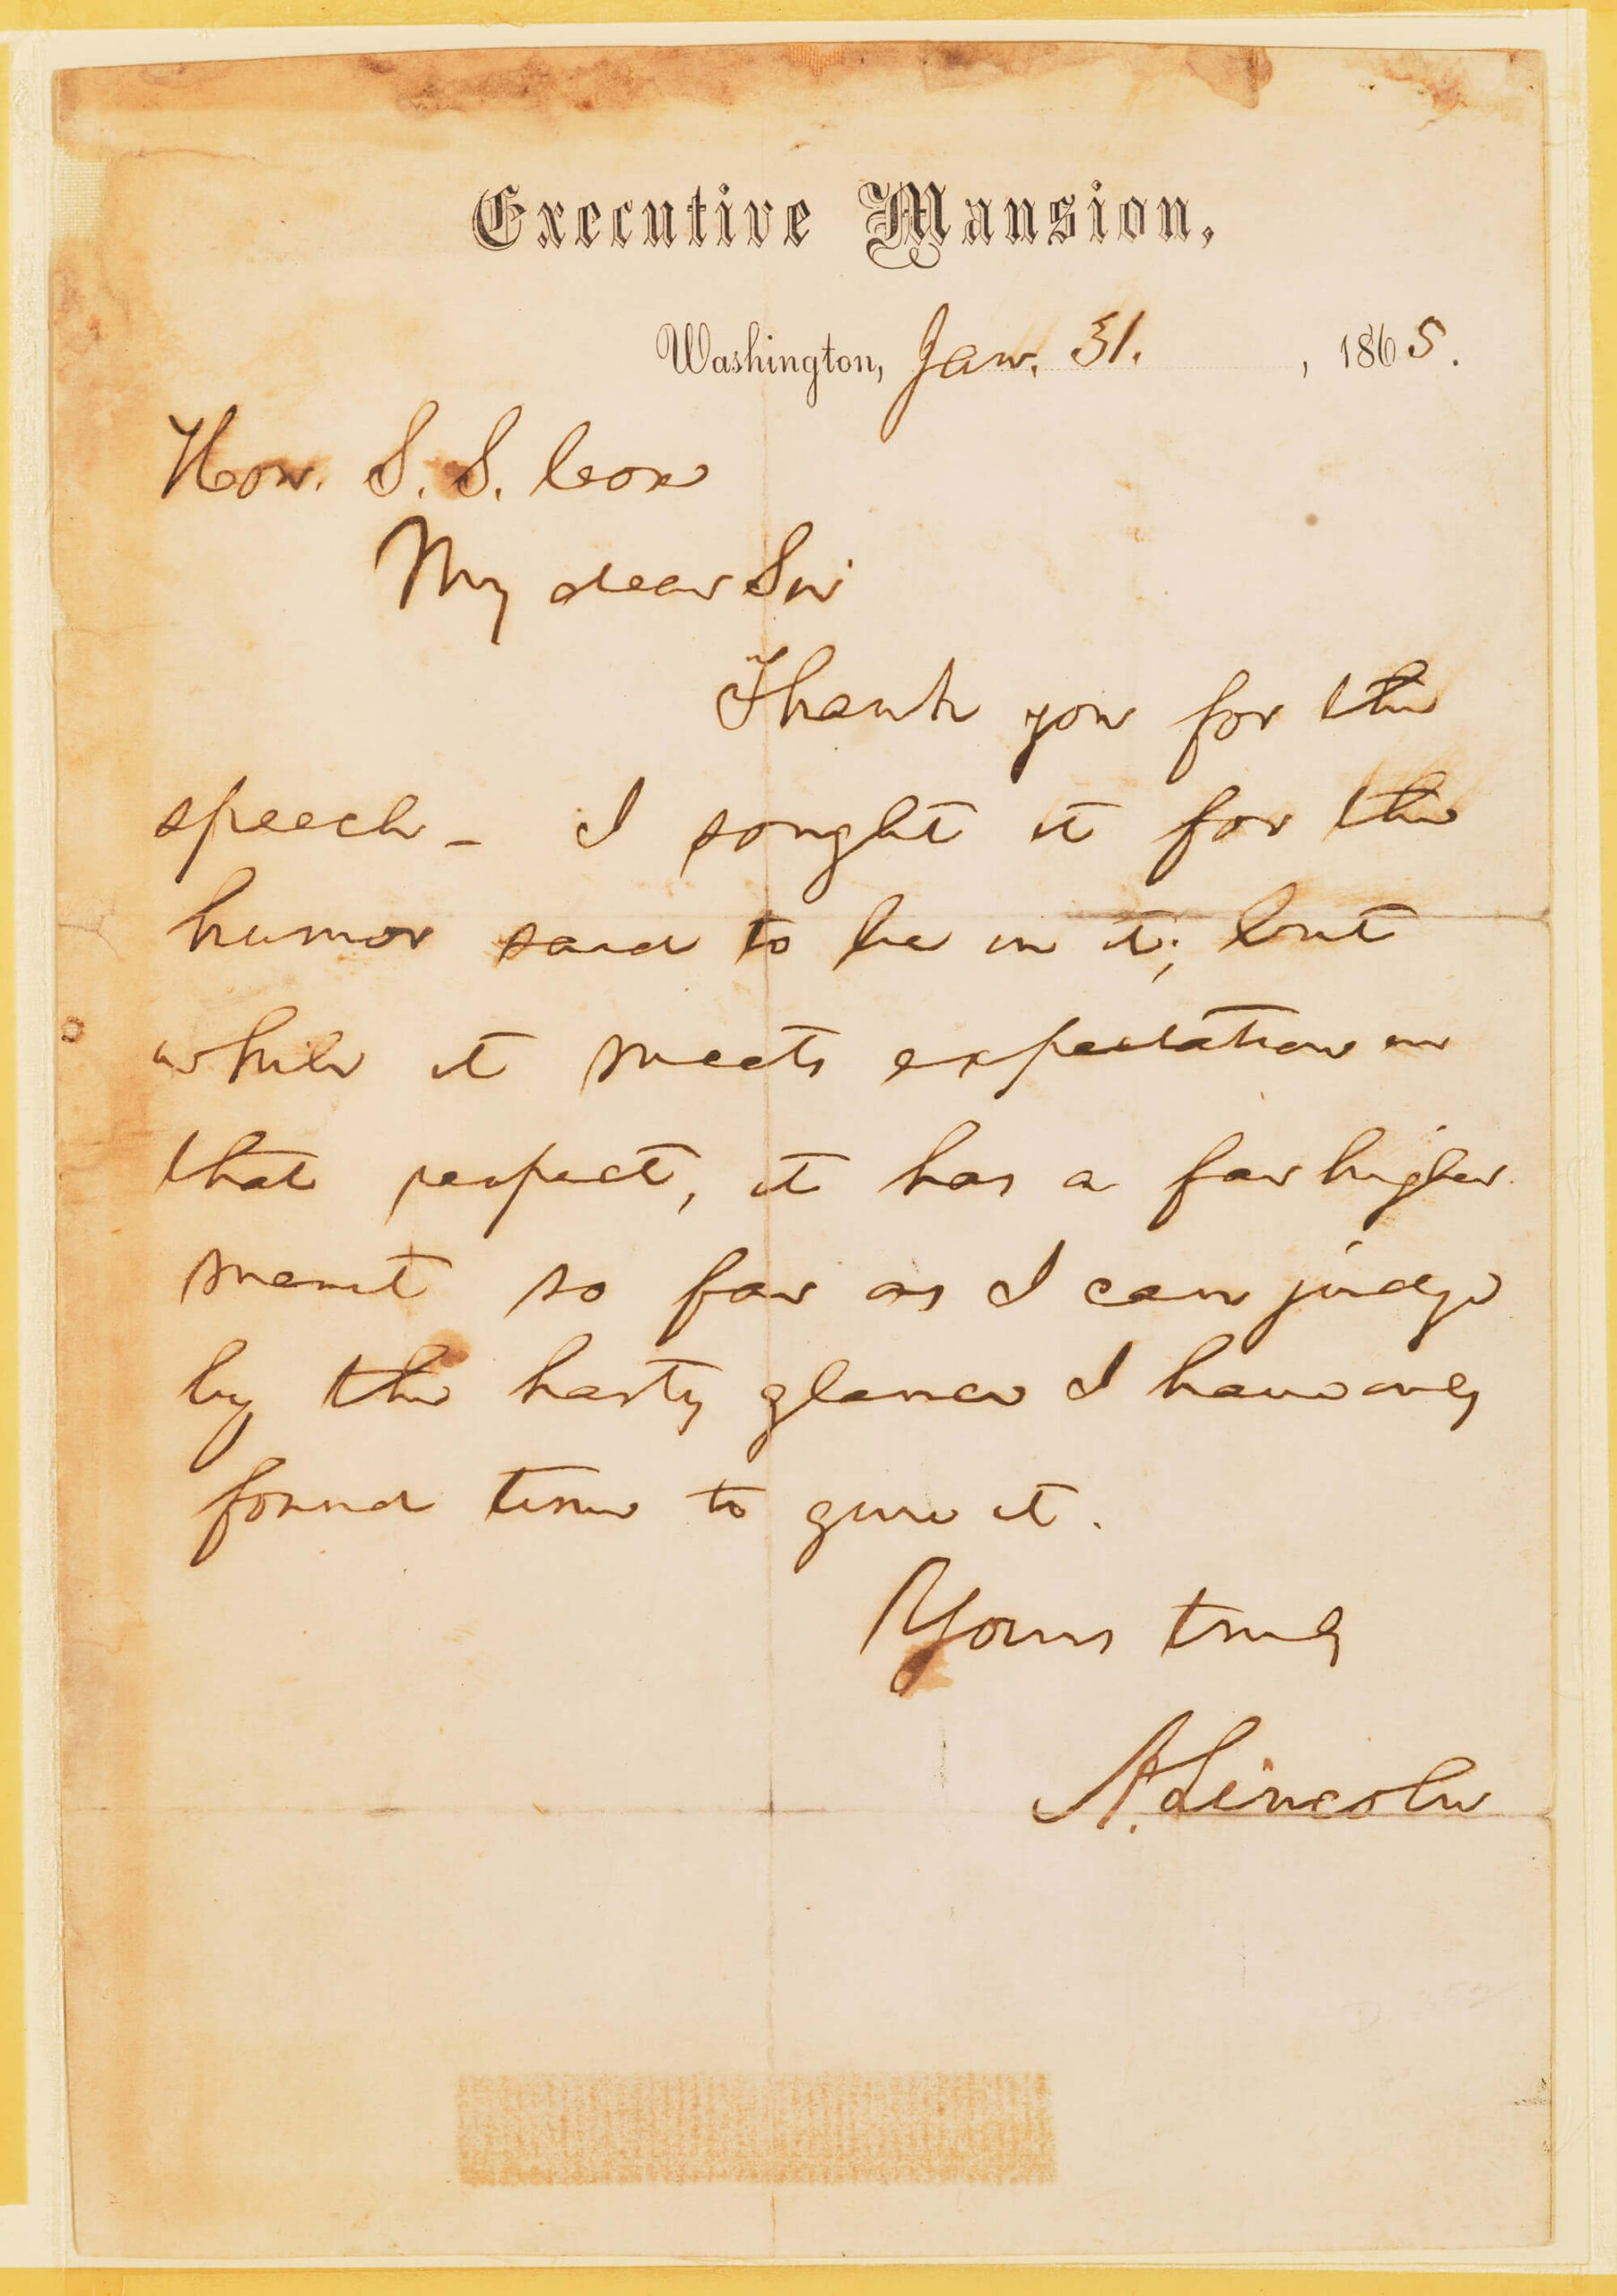 Executive Mansion,
Washington, Jan. 31. , 1865.
Hon. S. S. Cox
My dear Sir
Thank you for the
speech - I sought it for the
humor said to be in it; but
while it meets expectation in
that respect, it has a far higher
merit so far as I can judge
by the hasty glance I have only
found time to give it.
Yours truly
A. Lincoln